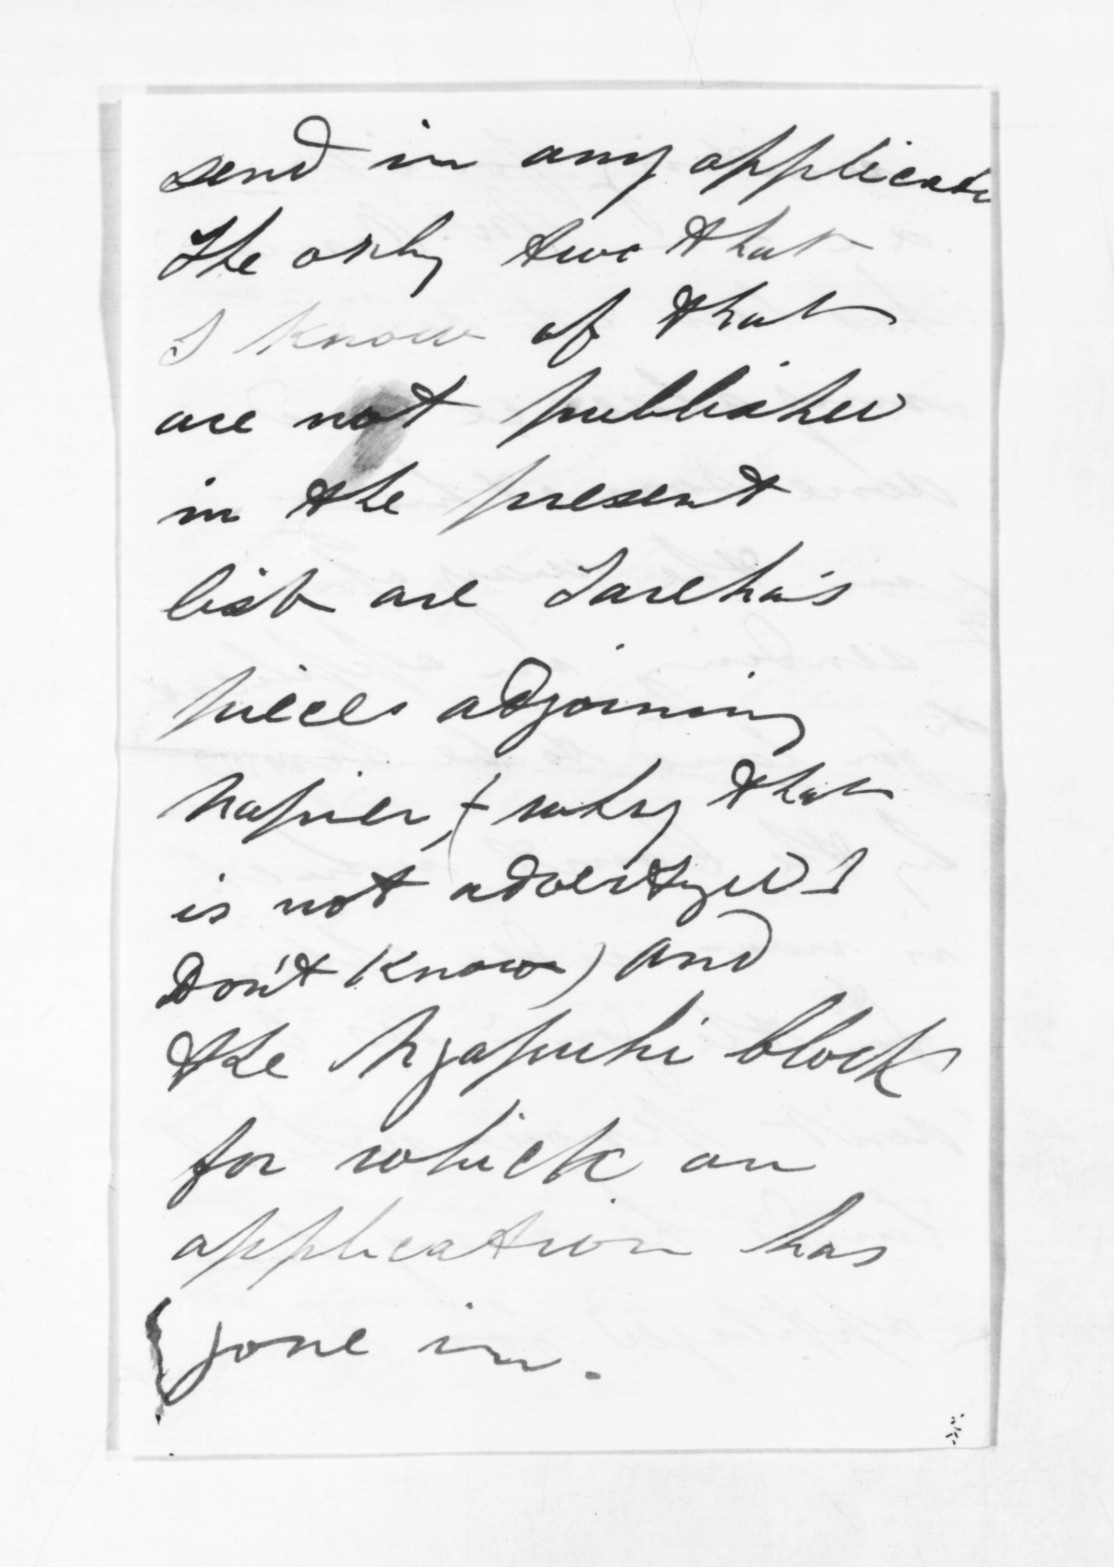 send in any applicatn
The only two that
I know of that
are not published
in the present
list are Tareha's
pieces adjoining
Napier, (& why that
is not advertized I
Don't know) and
the Ngapuhi block
for which an
application has
gone in.